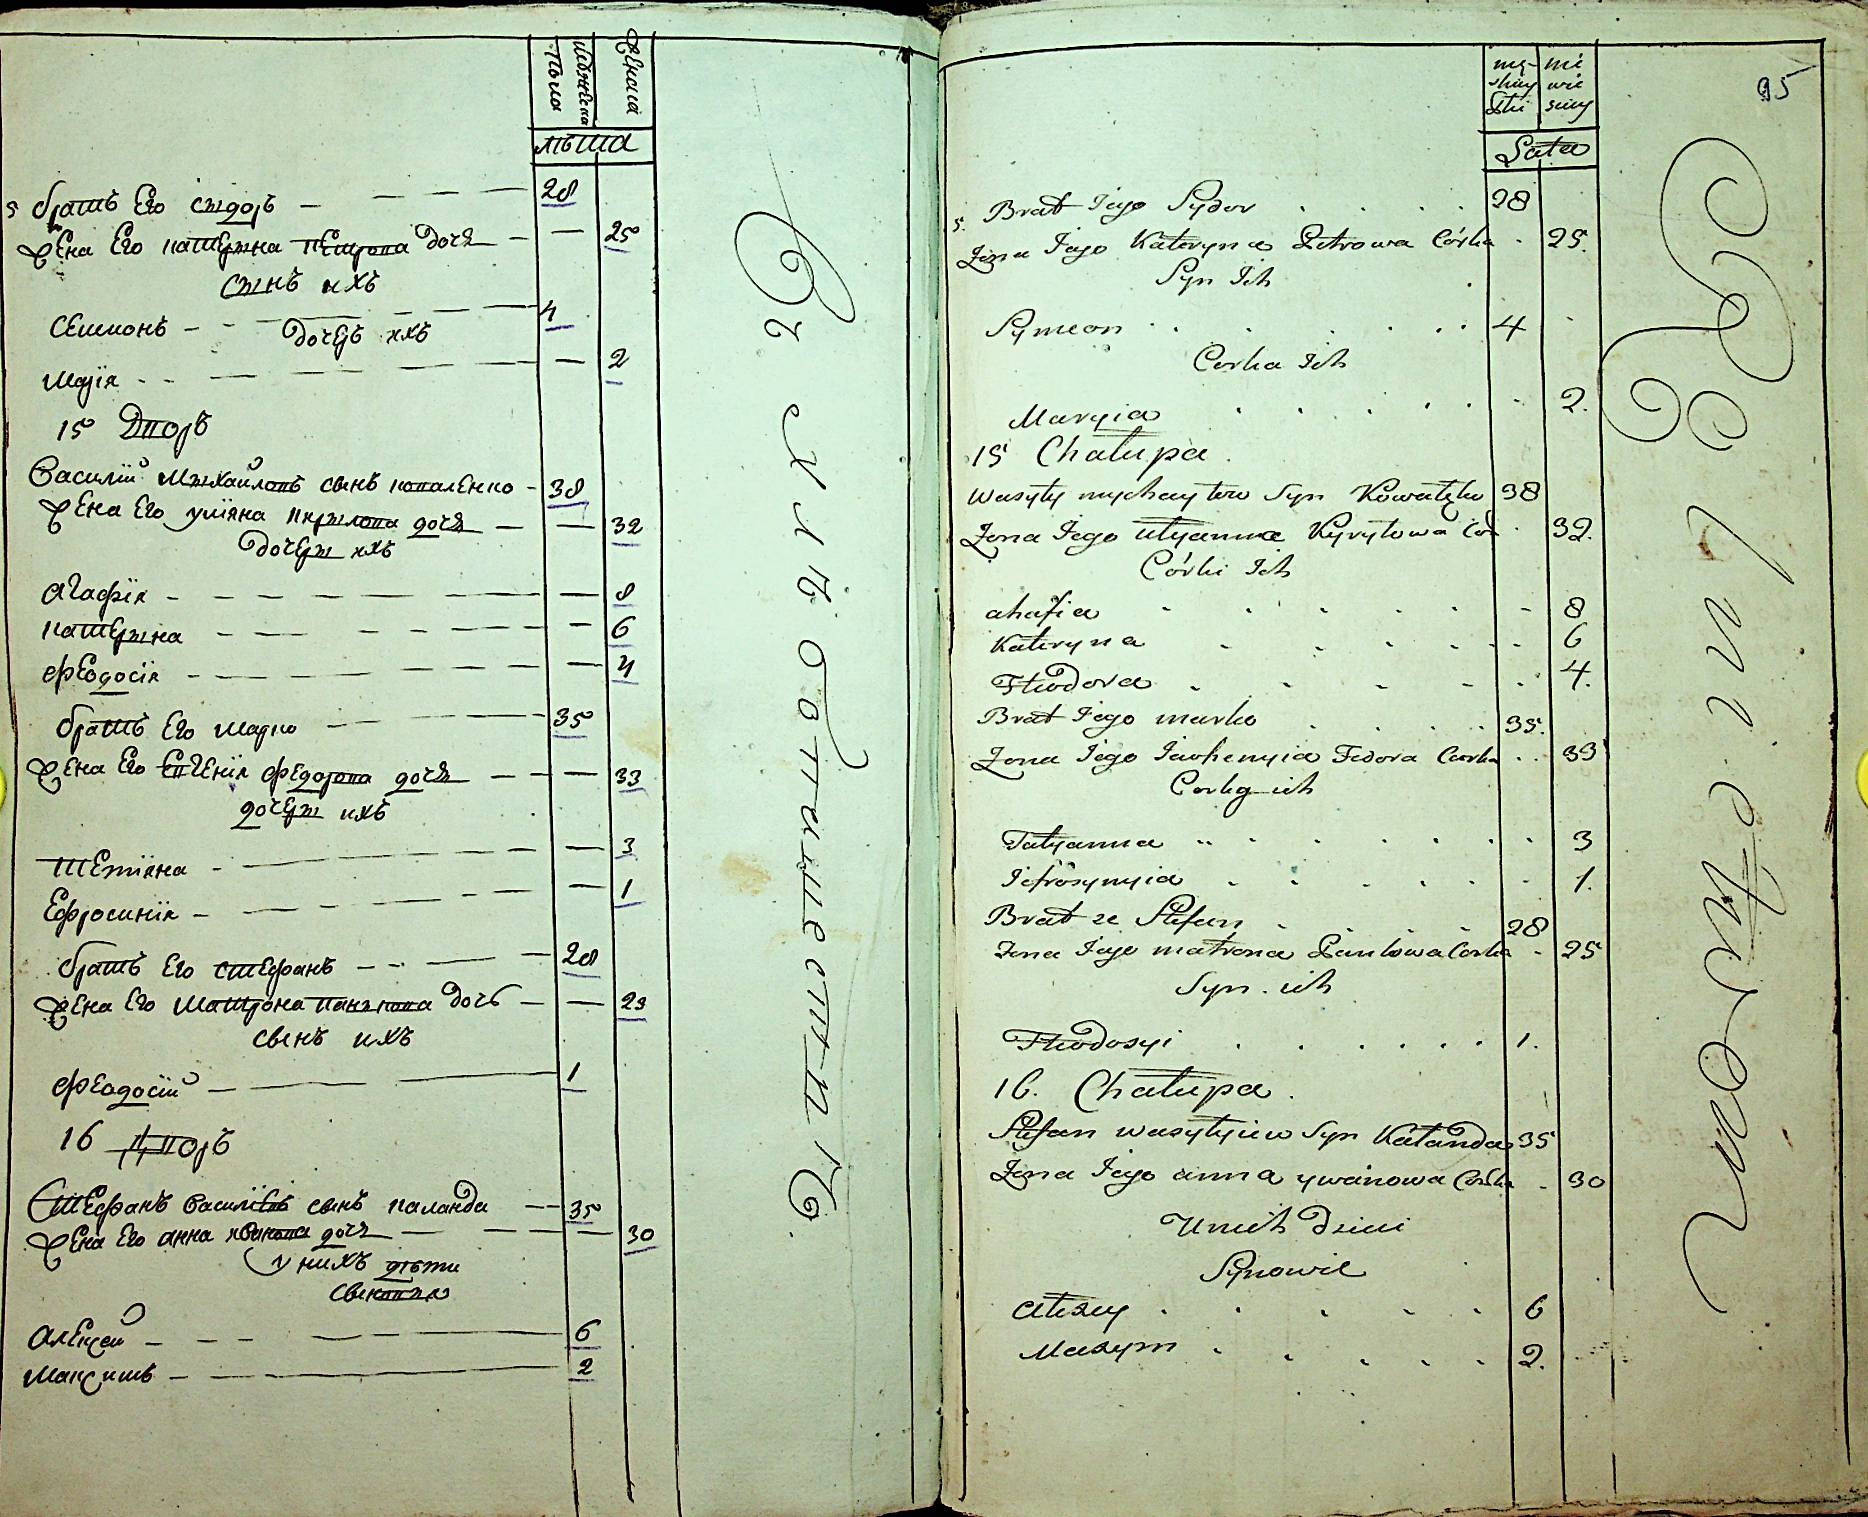 Мужеска Пола
Женска
лѣта
5 братъ Его сыдоръ 28
Жена Его катерына пЕтрова дочь 25
Сынъ ихъ
СЕмионъ 4
дочерь ихъ
Марія 2
15 Дворъ
Василій Мыхайловъ сынъ коваленко 38
Жена Его уліяна кырылова дочь 32
Дочеры ихъ
Агафія 8
катЕрына 6
фЕодосія 4
братъ Его Марко 35
Жена Его Евгенія федорова дочь 33
дочеры ихъ
тЕтіяна 3
Ефросинія 1
братъ Его стЕфанъ 28
Жена Его Матрона павлова дочь 23
сынъ ихъ
феодосій 1
16 Дворъ
СтЕфанъ василіевъ сынъ каланда 35
Жена Его анна ивановa дочь 30
у нихъ дѣти
сыновья
Алексей 6
Максимъ 2
95
męskiey Płci
niewieściey
Lata
5. Brat Jego Sydor 28
Zona Jego Kateryna Petrowa Córka 25.
Syn Ich
Symeon 4
Corka Ich
Maryia 2.
15 Chałupa.
Wasyły mychayłow Syn Kowalęko 38
Zona Jego Ulyanna Kyryłowa Cór 32.
Córki Ich
ahafia 8
Kateryna 6
Fheodora 4.
Brat Jego marko 35.
Zona Jego Jawhenyia Fedora Corka 33
Corky ich
Tatyanna 3
Jefrosynyia 1.
Brat ze Stefan 28
Zona Jego matrona Pawłowa Corka 25
Syn ich
Fheodosyi 1.
16. Chałupa.
Stefan wasylyiew Syn Kałanda 35
Zona Jego anna ywanowa Córka 30
U nich Dzieci
Synowie
Alexey 6
Maxym 2.